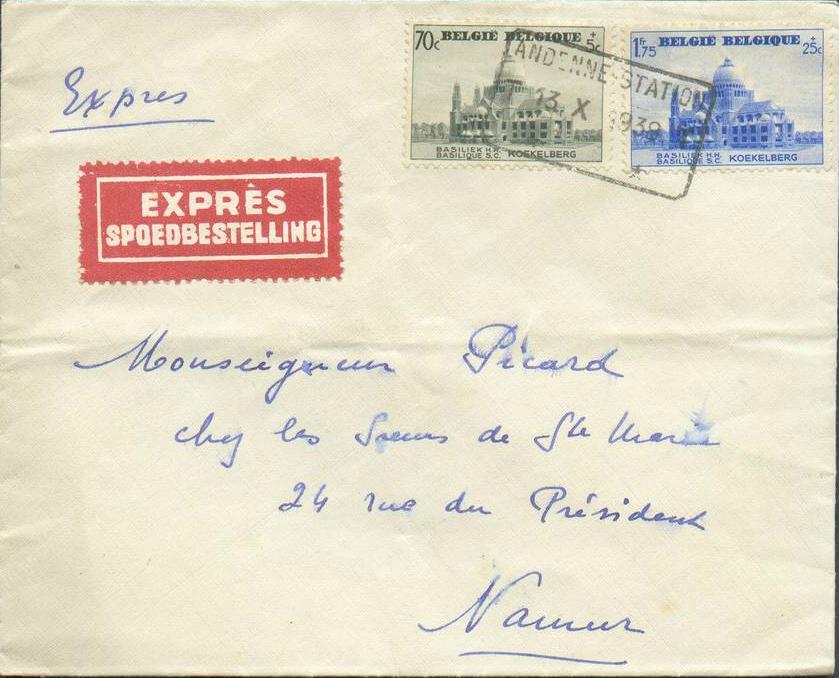 Expres
EXPRÈS
SPOEDBESTELLING
70c BELGIË BELGIQUE + 5c
BASILIEK H.H.
BASILIQUE S.C. KOEKELBERG
1Fr 75 BELGIË BELGIQUE + 25c
BASILIEK H.H.
BASILIQUE S.C. KOEKELBERG
LANDENNE-STATION
13 X 1938
Monseigneur Picard
chez les Sœurs de Ste Marie
24 rue du Président
Namur